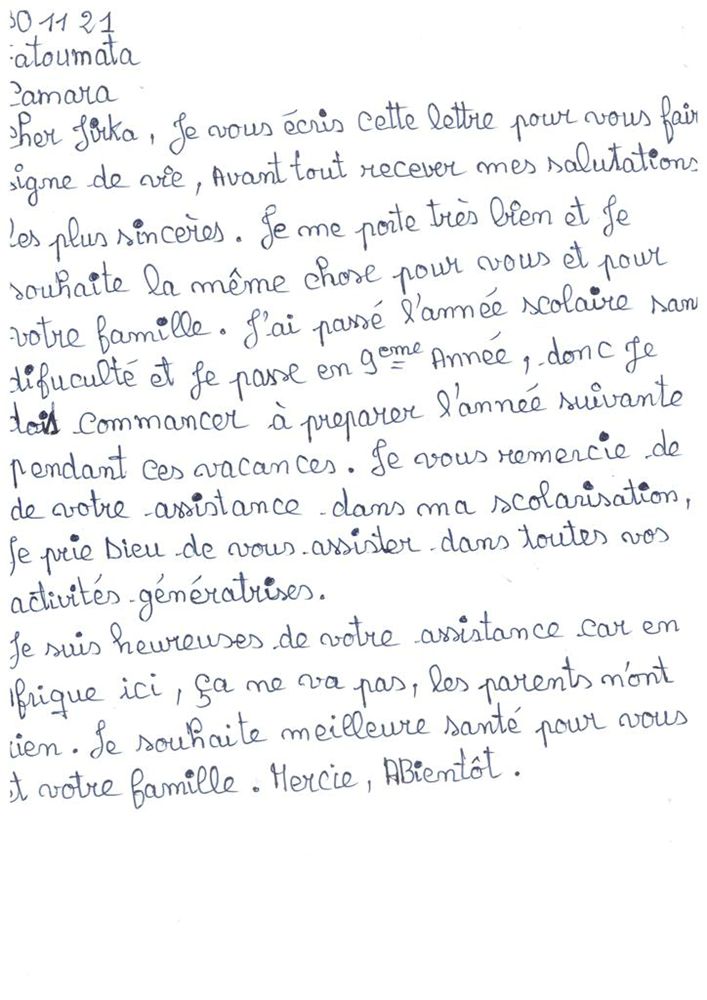 30 11 21
atoumata
Camara
Cher Jirka, Je vous écris cette lettre pour vous fair
signe de vie, Avant tout recever mes salutations
les plus sinceres. Je me poite très bien et Je
souhaite la même chose pour vous et pour
votre famille. J'ai passé l'année scolaire san
difuculté et Je passe en 9eme Année, donc Je
dois commancer à preparer l'année suivante
pendant ces vacances. Je vous remercie de
de votre assistance dans ma scolarisation,
Je prie Dieu de vous assister dans toutes vos
activités génératrises.
Je suis heureuses de votre assistance car en
frique ici, ça ne va pas, les parents n'ont
rien. Je souhaite meilleure santé pour vous
et votre famille. Mercie, ABientôt.